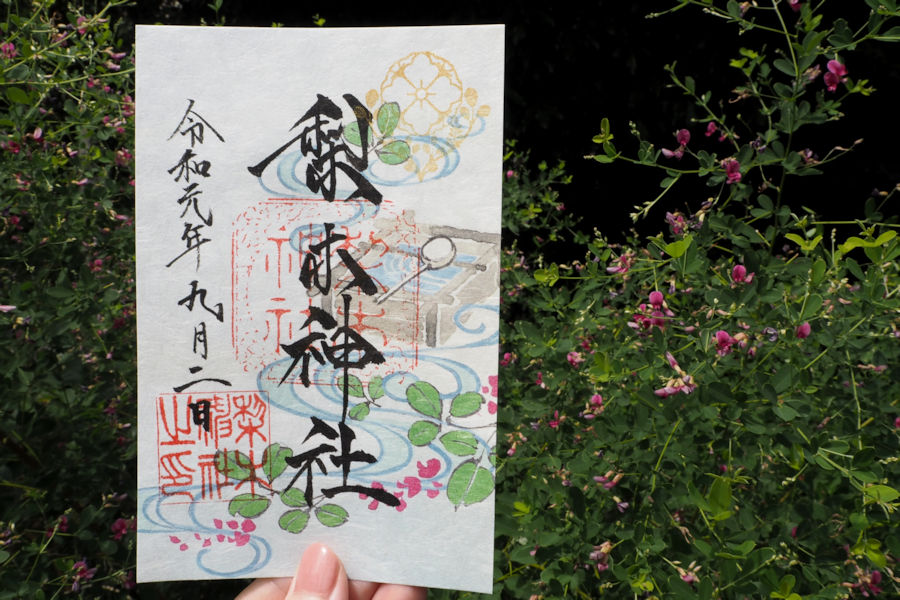 梨木神社
令和元年九月二日
梨木神社之印